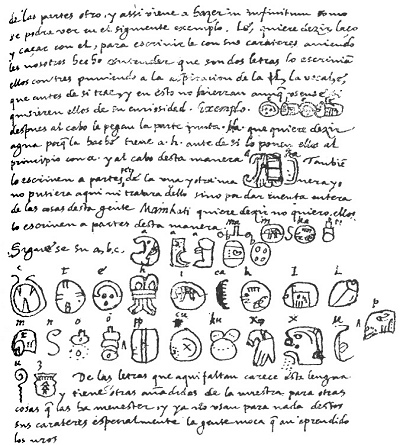 de las partes otro, y assi viene a hazer in infinitum como
se podra ver en el siguiente exemplo. Lé, quiere dezir laço
y caçar con el, para escrivirle con sus carateres aviendo
les nosotros hecho entender que son dos letras lo escrivian
ellos con tres puniendo a la aspiracion de la l, la vocal é,
que antes de si trae, y en esto no hierran aunq usense si
quisieren ellos de su curiosidad. Exemplo.
despues al cabo le pegan la parte junta. Ha que quiere dezir
agua porq la haché tiene a.h. ante de si lo ponen ellos al
principio con a. y al cabo desta manera ha Tambiē
lo escriven a partes de la una y otra manera, yo
no pusiera aqui ni tratara dello sino por dar cuenta entera
de las cosas desta gente. Mainkati quiere dezir no quiero, ellos
lo escriven a partes desta manera ma i n ka ti
Siguese su a, b, c. a a a b b
c t é h i ca k l l
m n o o pp cu ku x x u p
u z De las letras que aqui faltan carece esta lengua
y tiene otras añadidas de la nuestra para otras
cosas q las ha menester, y ya no usan para nada destos
sus carateres especialmente la gente moça q an aprendido
los nros